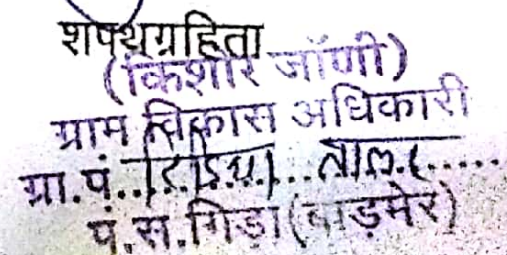 शपथग्रहिता
(किशोर जॉणी)
ग्राम विकास अधिकारी
ग्रा.पं.
पं.स.गिड़ा(बाड़मेर)